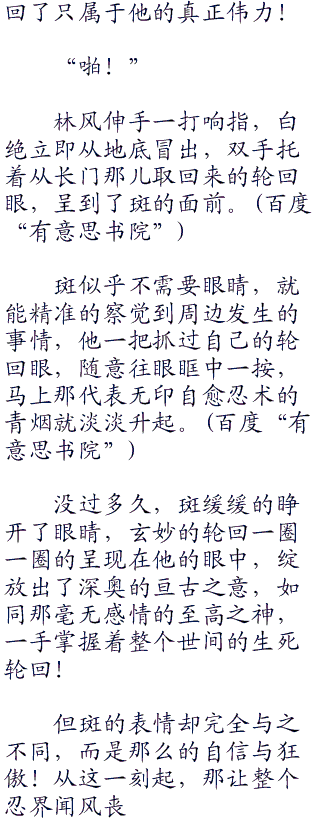 回了只属于他的真正伟力！
“啪！”
林风伸手一打响指，白
绝立即从地底冒出，双手托
着从长门那儿取回来的轮回
眼，呈到了斑的面前。(百度
“有意思书院”)
斑似乎不需要眼睛，就
能精准的察觉到周边发生的
事情，他一把抓过自己的轮
回眼，随意往眼眶中一按，
马上那代表无印自愈忍术的
青烟就淡淡升起。(百度“有
意思书院”)
没过多久，斑缓缓的睁
开了眼睛，玄妙的轮回一圈
一圈的呈现在他的眼中，绽
放出了深奥的亘古之意，如
同那毫无感情的至高之神，
一手掌握着整个世间的生死
轮回！
但斑的表情却完全与之
不同，而是那么的自信与狂
傲！从这一刻起，那让整个
忍界闻风丧